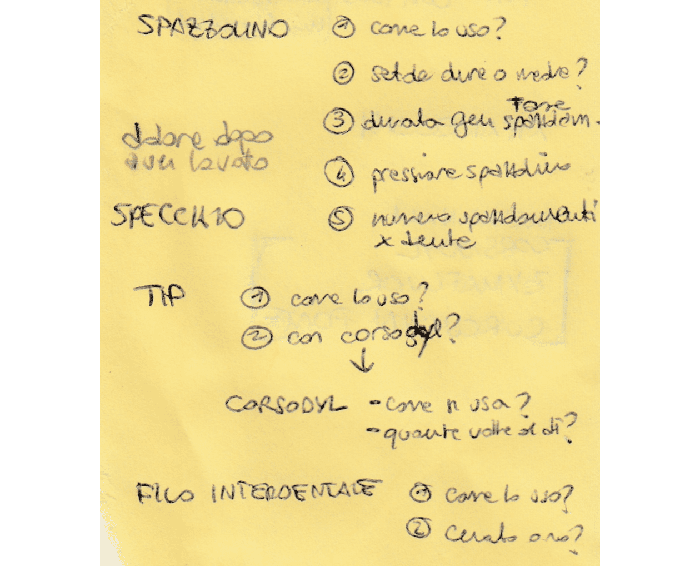 SPAZZOLINO ① come lo uso?
② setole dure o medie?
③ durata gen spazzolam.
fase
dolore dopo
aver lavato
④ pressione spazzolino
SPECCHIO ⑤ numero spazzolamenti
x dente
TIP ① come lo uso?
② con corsodyl?
↓
CORSODYL - come si usa?
- quante volte al dì?
FILO INTERDENTALE ① come lo uso?
② cerato o no?